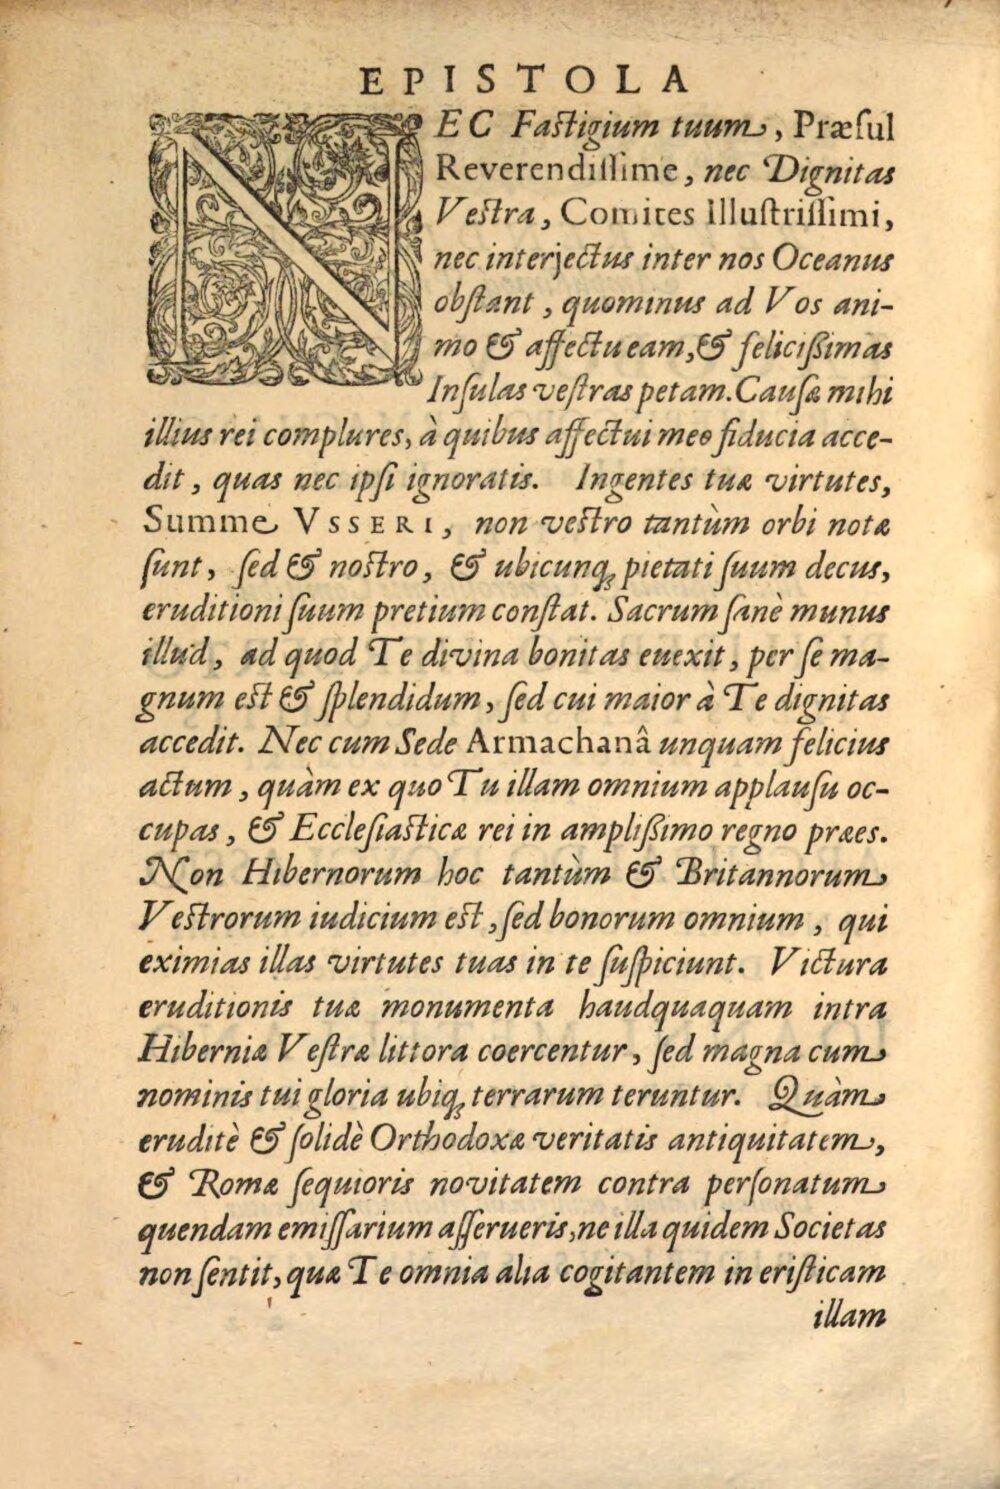 EPISTOLA
NEC Fastigium tuum, Præsul
Reverendissime, nec Dignitas
Vestra, Comites Illustrissimi,
nec interjectus inter nos Oceanus
obstant, quominus ad Vos ani-
mo & affectu eam, & felicißimas
Insulas vestras petam. Causæ mihi
illius rei complures, à quibus affectui meo fiducia acce-
dit, quas nec ipsi ignoratis. Ingentes tuæ virtutes,
Summe VSSERI, non vestro tantùm orbi notæ
sunt, sed & nostro, & ubicunq; pietati suum decus,
eruditioni suum pretium constat. Sacrum sanè munus
illud, ad quod Te divina bonitas euexit, per se ma-
gnum est & splendidum, sed cui maior à Te dignitas
accedit. Nec cum Sede Armachanâ unquam felicius
actum, quàm ex quo Tu illam omnium applausu oc-
cupas, & Ecclesiasticæ rei in amplißimo regno præes.
Non Hibernorum hoc tantùm & Britannorum
Vestrorum iudicium est, sed bonorum omnium, qui
eximias illas virtutes tuas in te suspiciunt. Victura
eruditionis tuæ monumenta haudquaquam intra
Hiberniæ Vestræ littora coercentur, sed magna cum
nominis tui gloria ubiq; terrarum teruntur. Quàm
eruditè & solidè Orthodoxæ veritatis antiquitatem,
& Romæ sequioris novitatem contra personatum
quendam emissarium asserueris, ne illa quidem Societas
non sentit, quæ Te omnia alia cogitantem in eristicam
illam